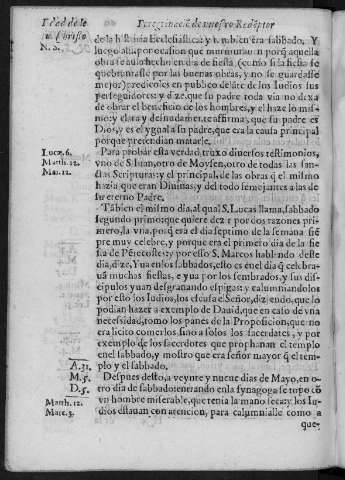 Peregrinació de nuestro Redẽptor
de la historia Ecclesiastica: y tãbien era sabbado. Y
luego alli, por ocasion que murmuraron porq̃ aquella
obra se auia hecho en dia de fiesta, (como si la fiesta se
quebrantasse por las buenas obras, y no se guardasse
mejor) predico en publico delãte de los Iudios sus
perseguidores: y dize, que su padre toda via no dexa
de obrar el beneficio de los hombres, y el haze lo mis-
mo: y clara y desnudamẽte affirma, que su padre es
Dios, y es el ygual a su padre, que era la causa principal
porque pretendian matarle.
Lucæ. 6.
Matth. 12.
Mar. 12.
Para prouar esta verdad, truxo diuersos testimonios,
vno de S. Iuan, otro de Moysen, otro de todas las san-
ctas Scripturas: y el principal, de las obras q̃ el mismo
hazia que eran Diuinas, y del todo semejantes a las de
su eterno Padre.
Tãbien el mismo dia, al qual S. Lucas llama, sabbado
segundo primo (que quiere dezir por dos razones pri-
mero, la vna, porq̃ era el dia septimo de la semana siẽ
pre muy celebre, y porque era el primero dia de la fie
sta de Pẽtecostes: y por esso S. Marcos hablando deste
dia, dize, Yua en los sabbados, esto es en el dia q̃ celebra-
uã muchas fiestas, e yua por los sembrados, y sus dis-
cipulos yuan desgranando espigas: y calumniandolos
por esto los Iudios, los escusa el Señor, diziendo, que lo
podian hazer a exemplo de Dauid, que en caso de vna
necessidad, tomo los panes de la Proposicion, que no
era licito comerlos sino a solos los sacerdotes, y por
exemplo de los sacerdotes que prophanan el templo
en el sabbado, y mostro que era señor mayor q̃ el tem-
plo y el sabbado.
A. 31.
M. 5.
D. 5.
Matth. 12.
Marc. 3.
Despues desto, a veynte y nueue dias de Mayo, en o-
tro dia de sabbado entrando en la synagoga se topo cõ
vn hombre miserable, que tenia la mano seca: y los Iu-
dios estauan con atencion, para calumnialle como a
que-